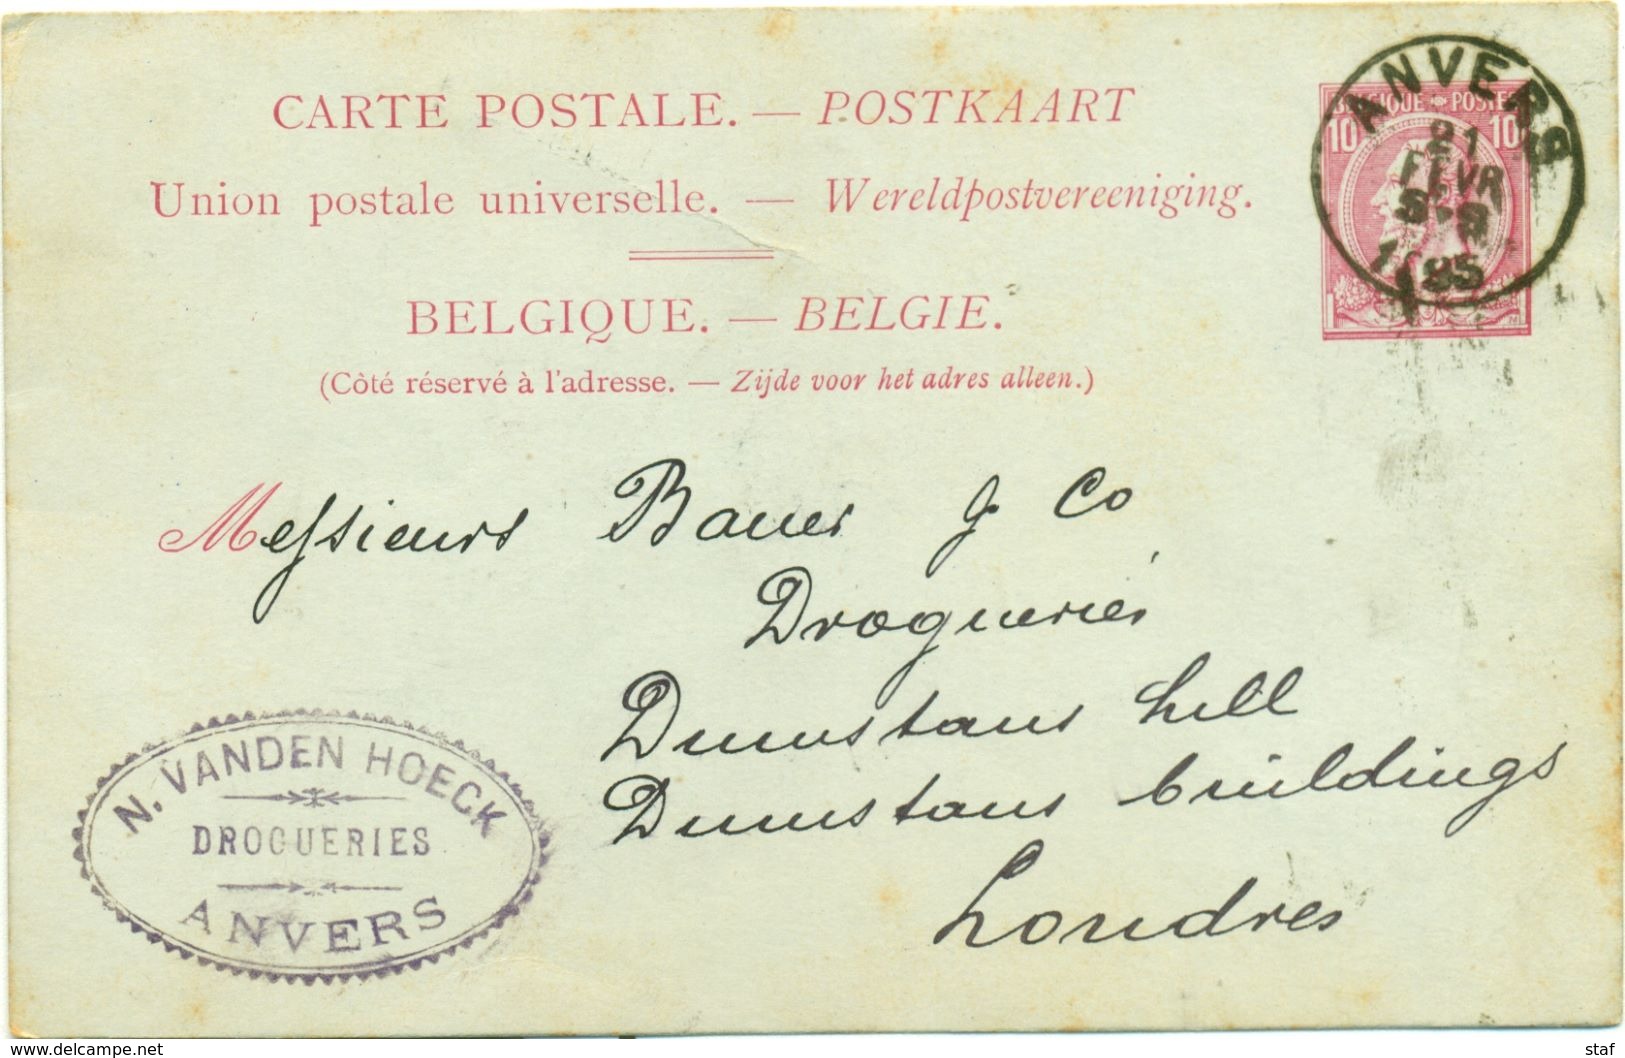 CARTE POSTALE. — POSTKAART
Union postale universelle. — Wereldpostvereeniging.
BELGIQUE. — BELGIE.
(Côté réservé à l'adresse. — Zijde voor het adres alleen.)
BELGIQUE POSTES
10 10
ANVERS
21
FEVR
1895
Messieurs Bauer & Co
Drogueries
Dunstans hill
Dunstans buildings
Londres
N. VANDEN HOECK
DROGUERIES
ANVERS
www.delcampe.net
staf